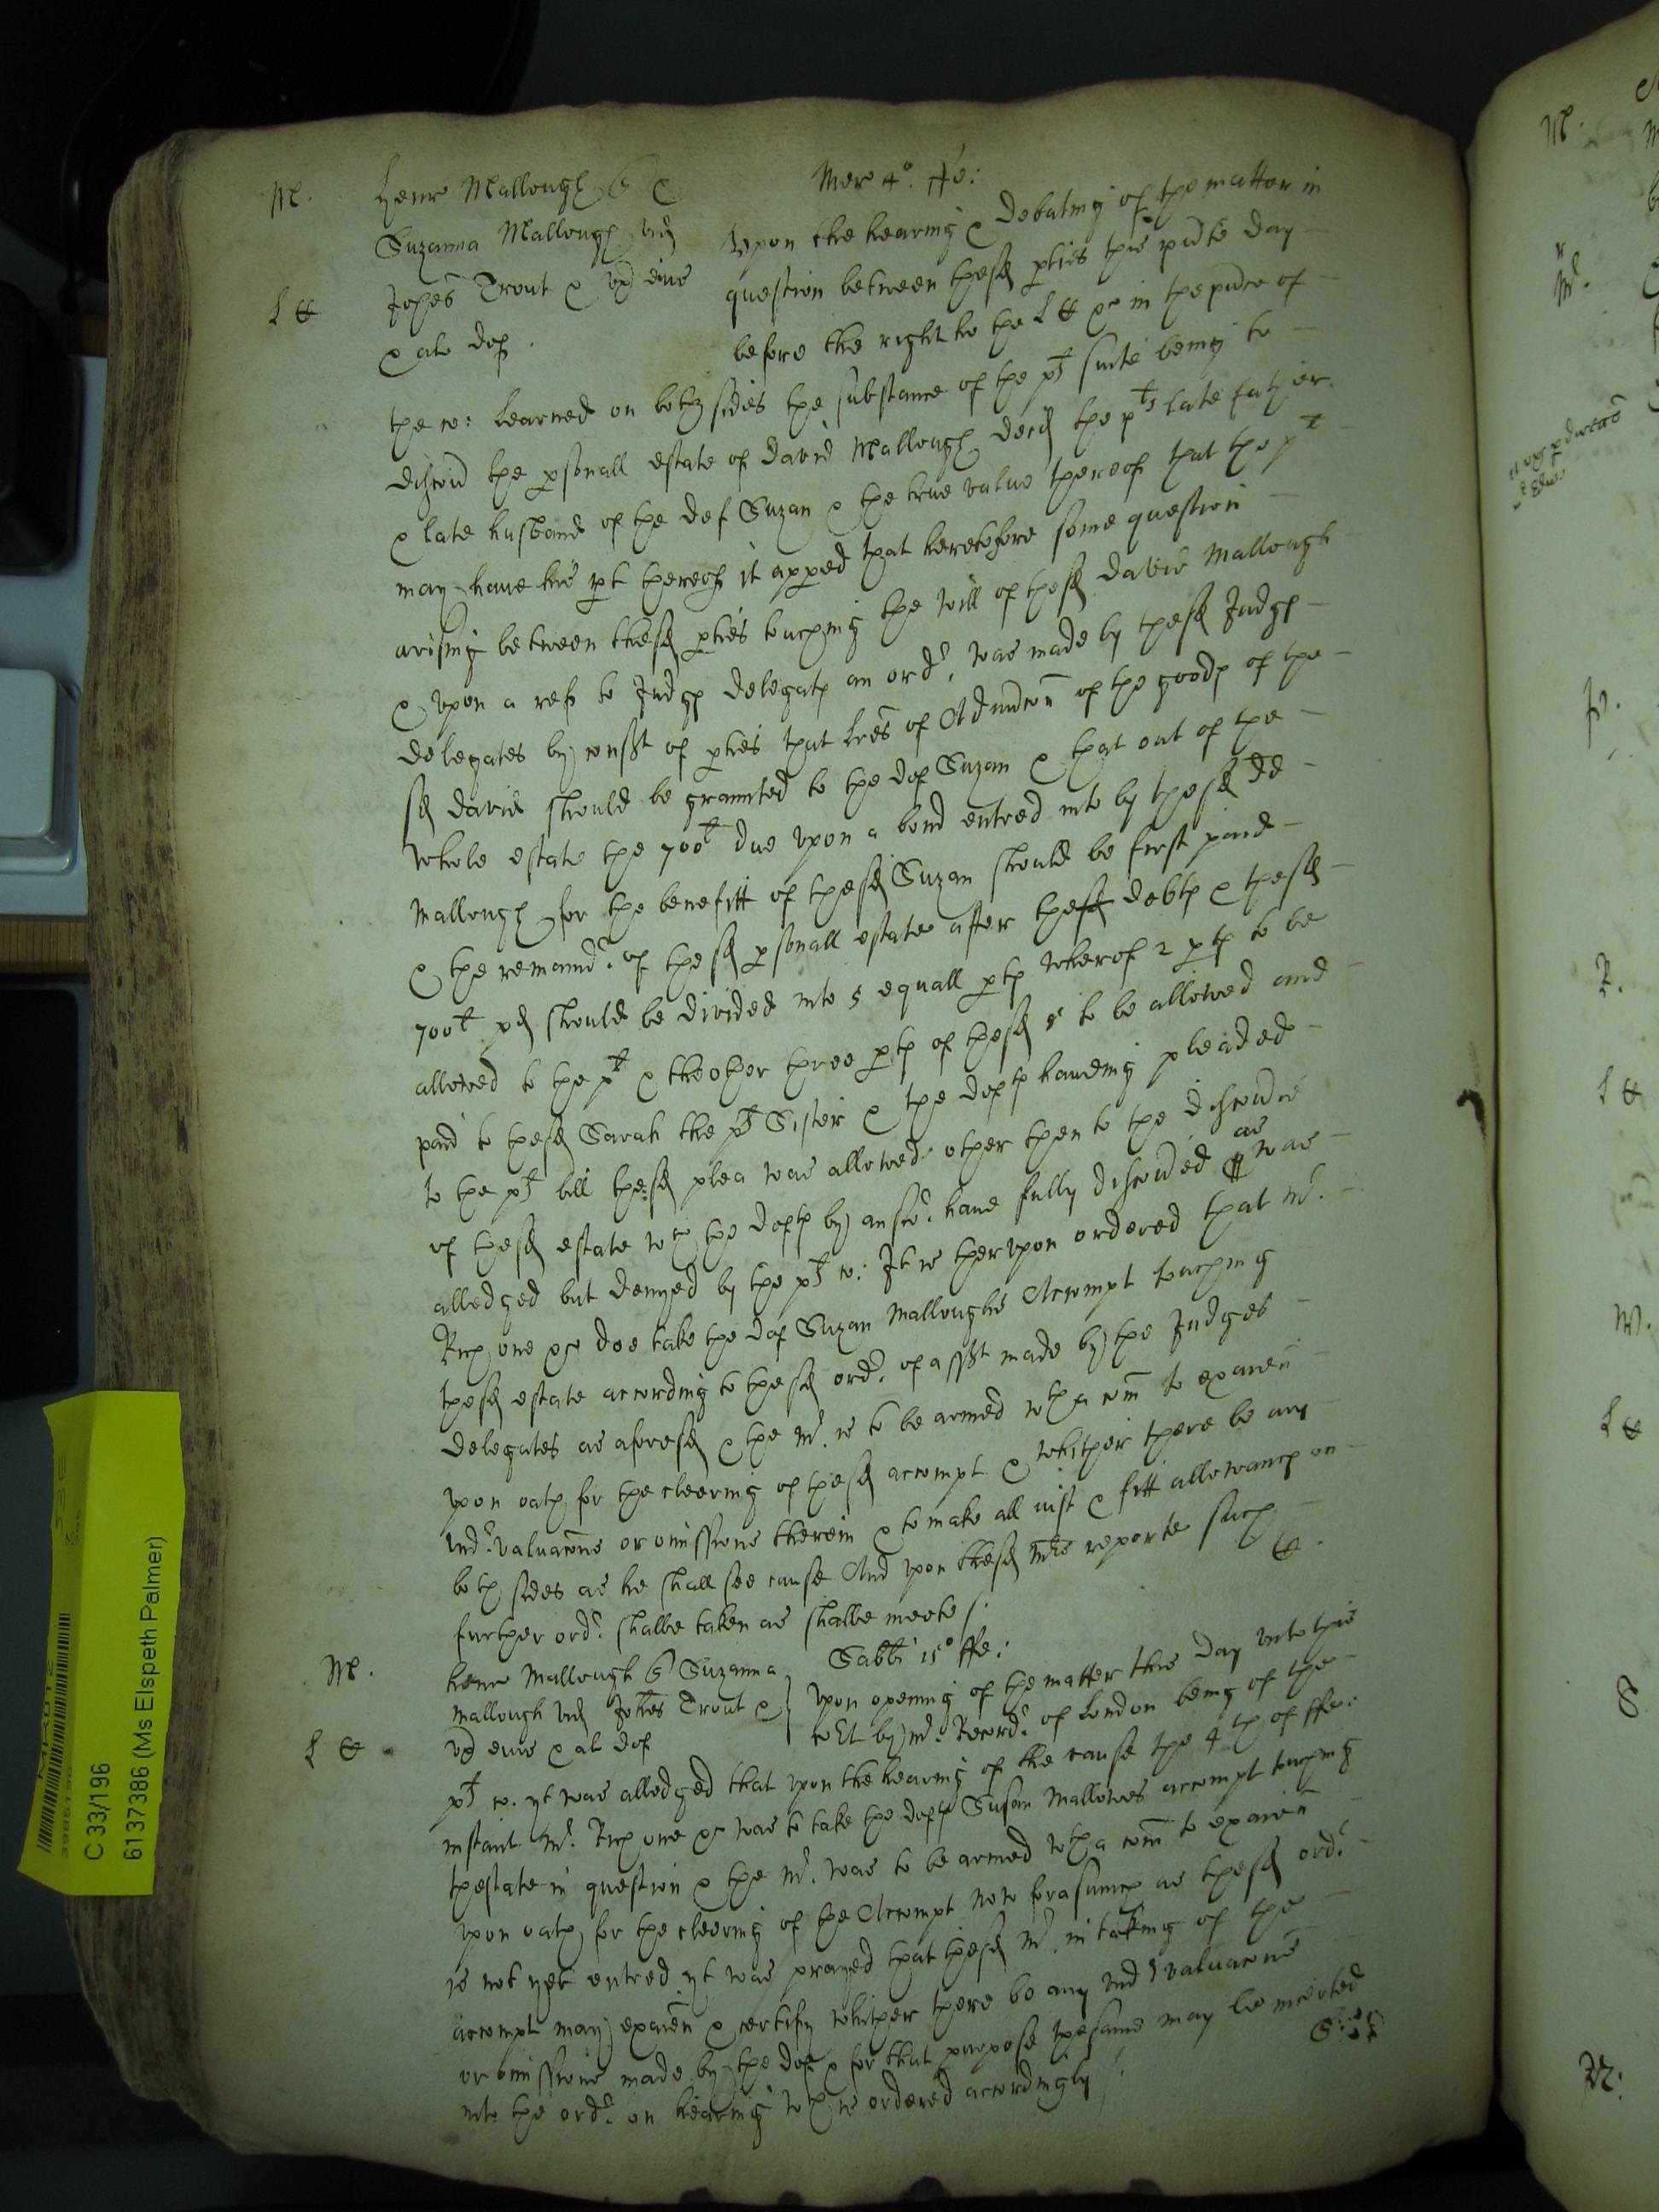 M. Henr Mallough q &
Mer 4° Fe:
Suzanna Mallough vid
Upon the hearing & debating of the matter in
L K Johes Trout & ux eius
question between the sd pties this pnte day
& als def.
before the right ho the L K &c in the pnce of
the co: learned on both sides the substance of the pt suite being to
discov the psonall estate of David Mallough decd the pts late father
& late husband of the def Suzan & the true value thereof that the pt
may have his pt thereof it appeed that heretofore some question
arising between the sd pties touching the will of the sd David Mallough
& upon a ref to Judges delegates an ordr was made by the sd Judges
delegates by consent of pties that lres of Admcon of the goods of the
sd David should be graunted to the def Suzan & that out of the
whole estate the 700l due upon a bond entred into by the sd Dd
Mallough for the benefitt of the sd Suzan should be first paid
& the remaindr of the sd psonall estate after the sd debts & the sd
700l pd should be divided into 5 equall pts wherof 2 pts to be
allowed to the pt & the other three pts of the sd 5 to be allowed and
paid to the sd Sarah the pts Sister & the defts haveing pleaded
to the pts bill the sd plea was allowed other then to the discovie
of the sd estate wch the defts by answr have fully discovered as was
alledged but denyed by the pts co: It is therupon ordered that Mr.
Rich one &c doe take the def Suzan Malloughs Accompt touching
the sd estate according to the sd ordr of assent made by the Judges
delegates as aforesd & the Mr. is to be armed wth a com to examen
upon oath for the cleering of the sd accompt & whither there be any
undrvaluacons or omissions therein & to make all iust & fitt allowances on
both sides as he shall see cause And upon the sd Mrs reporte such
further ordr shalbe taken as shalbe meete /.
M. Henr Mallough q Suzanna
Sabbi 15° ffe:
Mallough vid Johes Trout &
Upon opening of the matter this day unto this
L K ux eius & al def
co't by Mr Recordr of London being of the
pts co. yt was alledged that upon the hearing of the cause the 4th of ffe:
instant Mr. Rich one &c was to take the defts Susan Mallowes accompt touching
thestate in question & the Mr. was to be armed wth a com to examen
upon oath for the cleering of the Accompt Now forasmuch as the sd ordr
is not yet entred yt was prayed that the sd Mr. in taking of the
accompt may examen & certify whither there be any undrvaluacons
or omissions made by the def & for that purpose the same may be inserted
into the ordr on hearing wch is ordered accordingly /.
C 33/196
6137386 (Ms Elspeth Palmer)